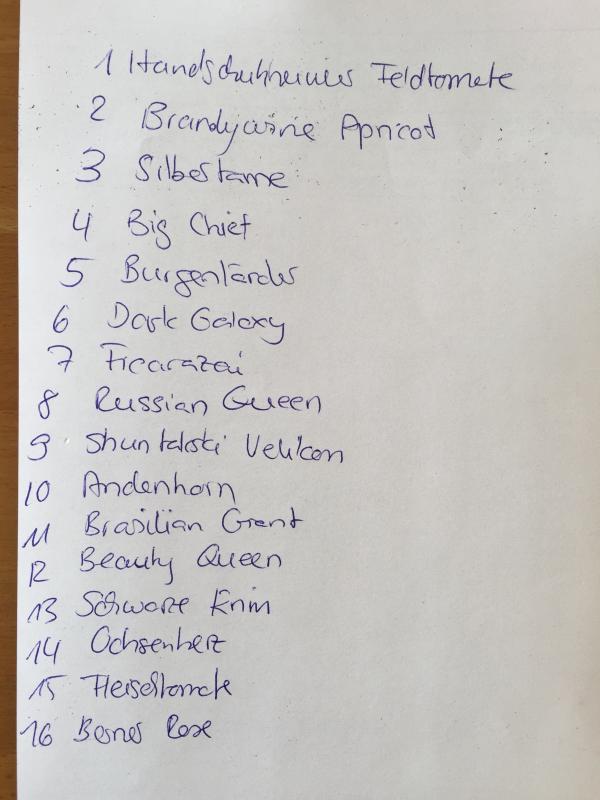 1 Handschuhheimer Feldtomate
2 Brandywine Apricot
3 Silbertanne
4 Big Chief
5 Burgenländer
6 Dark Galaxy
7 Ficarazzi
8 Russian Queen
9 Shuntukski Velikan
10 Andenhorn
11 Brasilian Grant
12 Beauty Queen
13 Schwarze Krim
14 Ochsenherz
15 Fleischtomate
16 Berner Rose